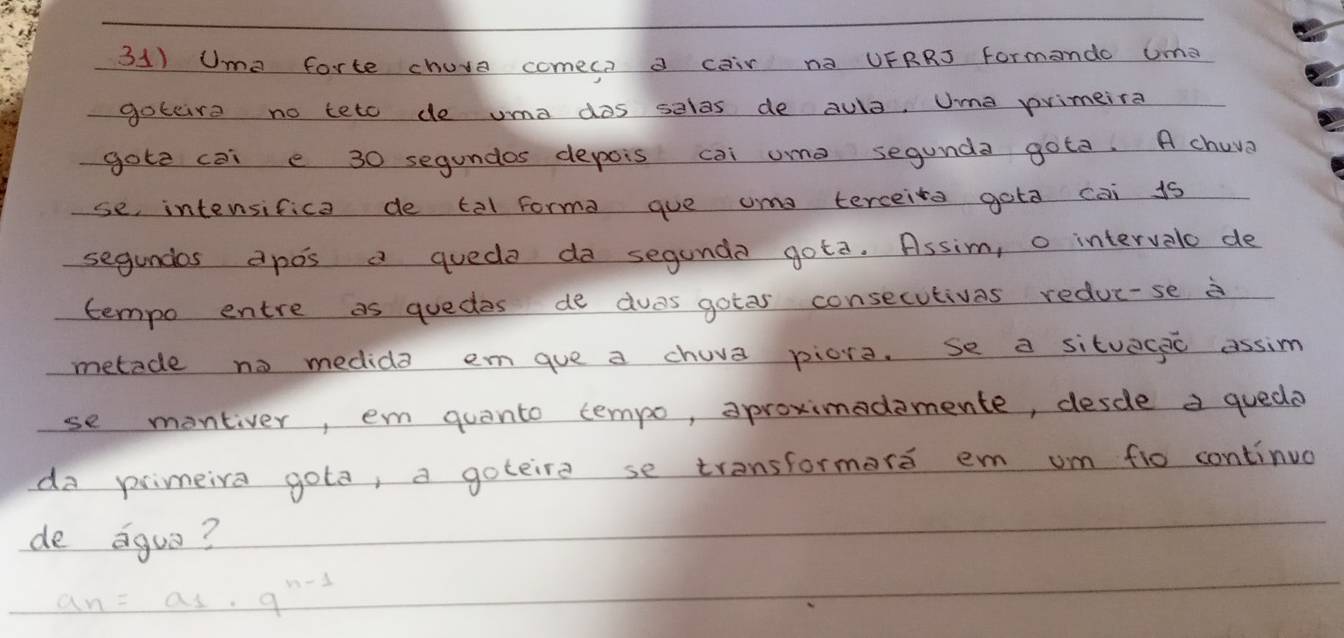 31) Uma forte chuva começa a cair na UFRRJ formando uma
goteira no teto de uma das salas de aula. Uma primeira
gota cai e 30 segundos depois cai uma segunda gota. A chuva
se intensifica de tal forma que uma terceira gota cai 15
segundos após a queda da segunda gota. Assim, o intervalo de
tempo entre as quedas de duas gotas consecutivas reduz-se à
metade na medida em que a chuva piora. Se a situação assim
se mantiver, em quanto tempo, aproximadamente, desde a queda
da primeira gota, a goteira se transformará em um fio contínuo
de água?
an = a1 . q^(n-1)